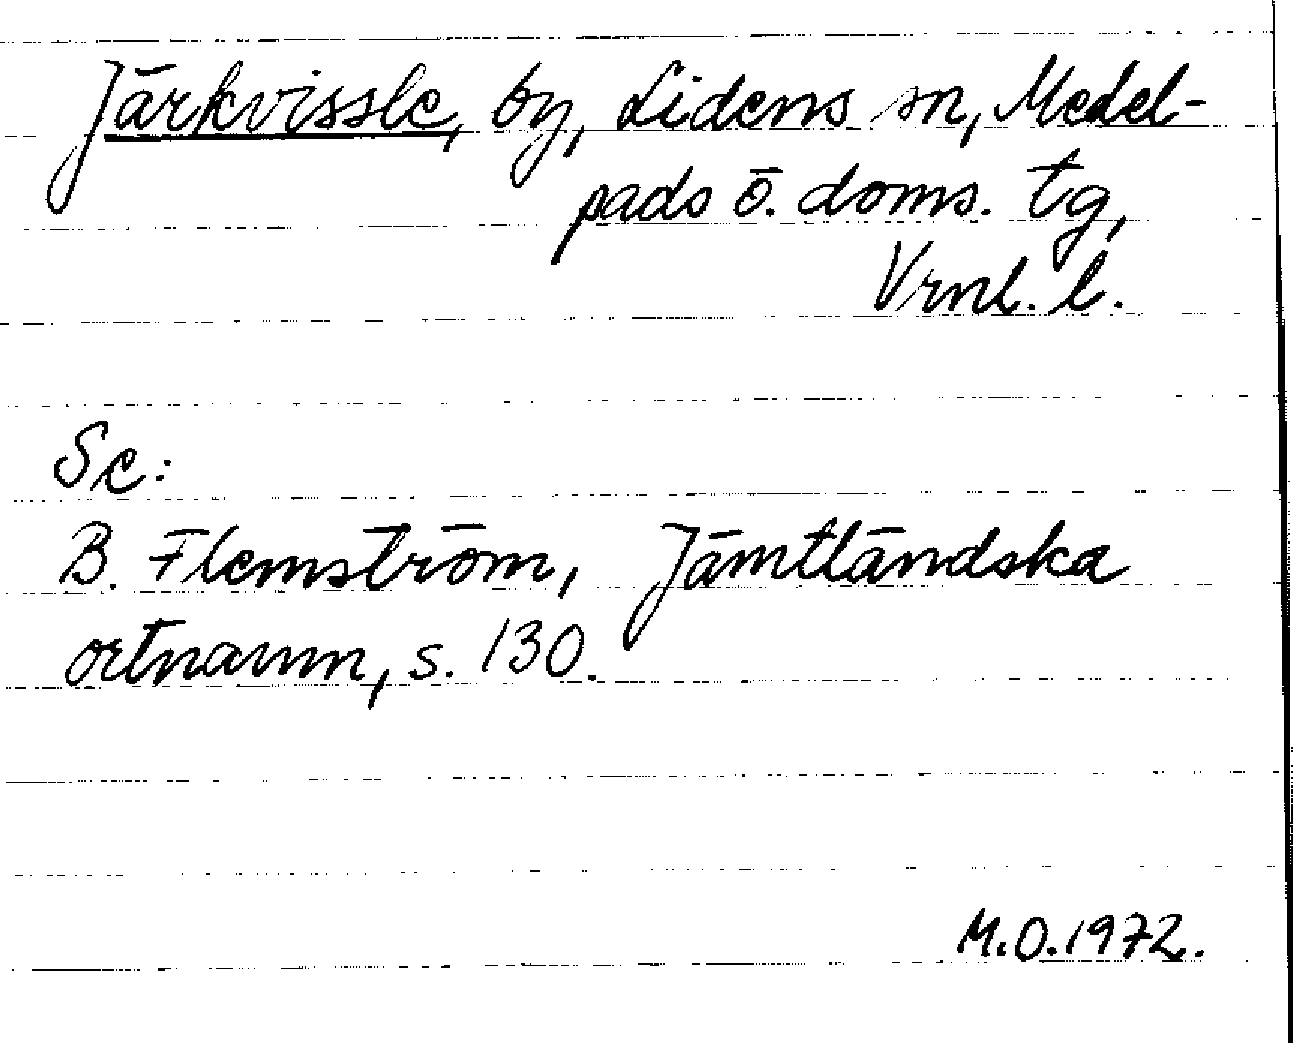 Järkvissle, by, Lidens sn, Medel-
pads ö. doms. tg,
Vrnl. l.
Se:
B. Flemström, Jämtländska
ortnamn, s. 130.
M.O.1972.